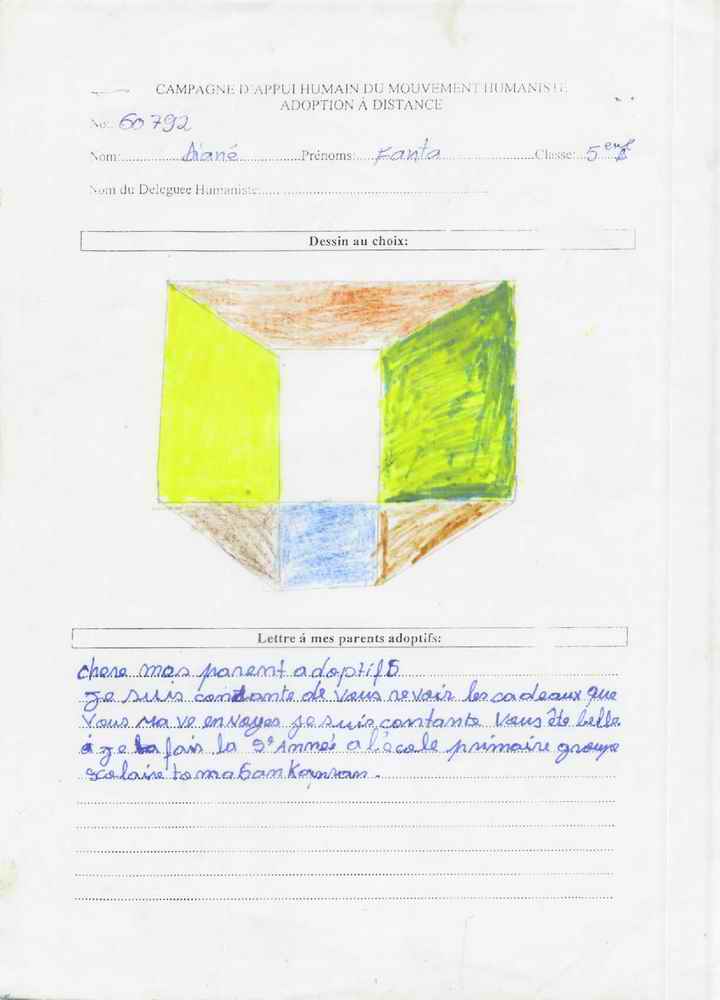 CAMPAGNE D'APPUI HUMAIN DU MOUVEMENT HUMANISTE
ADOPTION À DISTANCE
No: 60792
Nom: Diané Prénoms: Fanta Classe: 5
Nom du Deleguee Humaniste:
Dessin au choix:
Lettre á mes parents adoptifs:
chere mes parent adoptifs
je suis contante de vous revoir les cadeaux que
vous ma ve envoyes je suis contante vous ête belle
je fais la 5e Année a l'école primaire groupe
scolaire